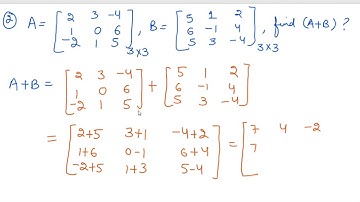 ② A = [2 3 -4
1 0 6
-2 1 5]3×3, B = [5 1 2
6 -1 4
5 3 -4]3×3, find (A+B) ?
A+B = [2 3 -4
1 0 6
-2 1 5] + [5 1 2
6 -1 4
5 3 -4]
= [2+5 3+1 -4+2
1+6 0-1 6+4
-2+5 1+3 5-4] = [7 4 -2
7